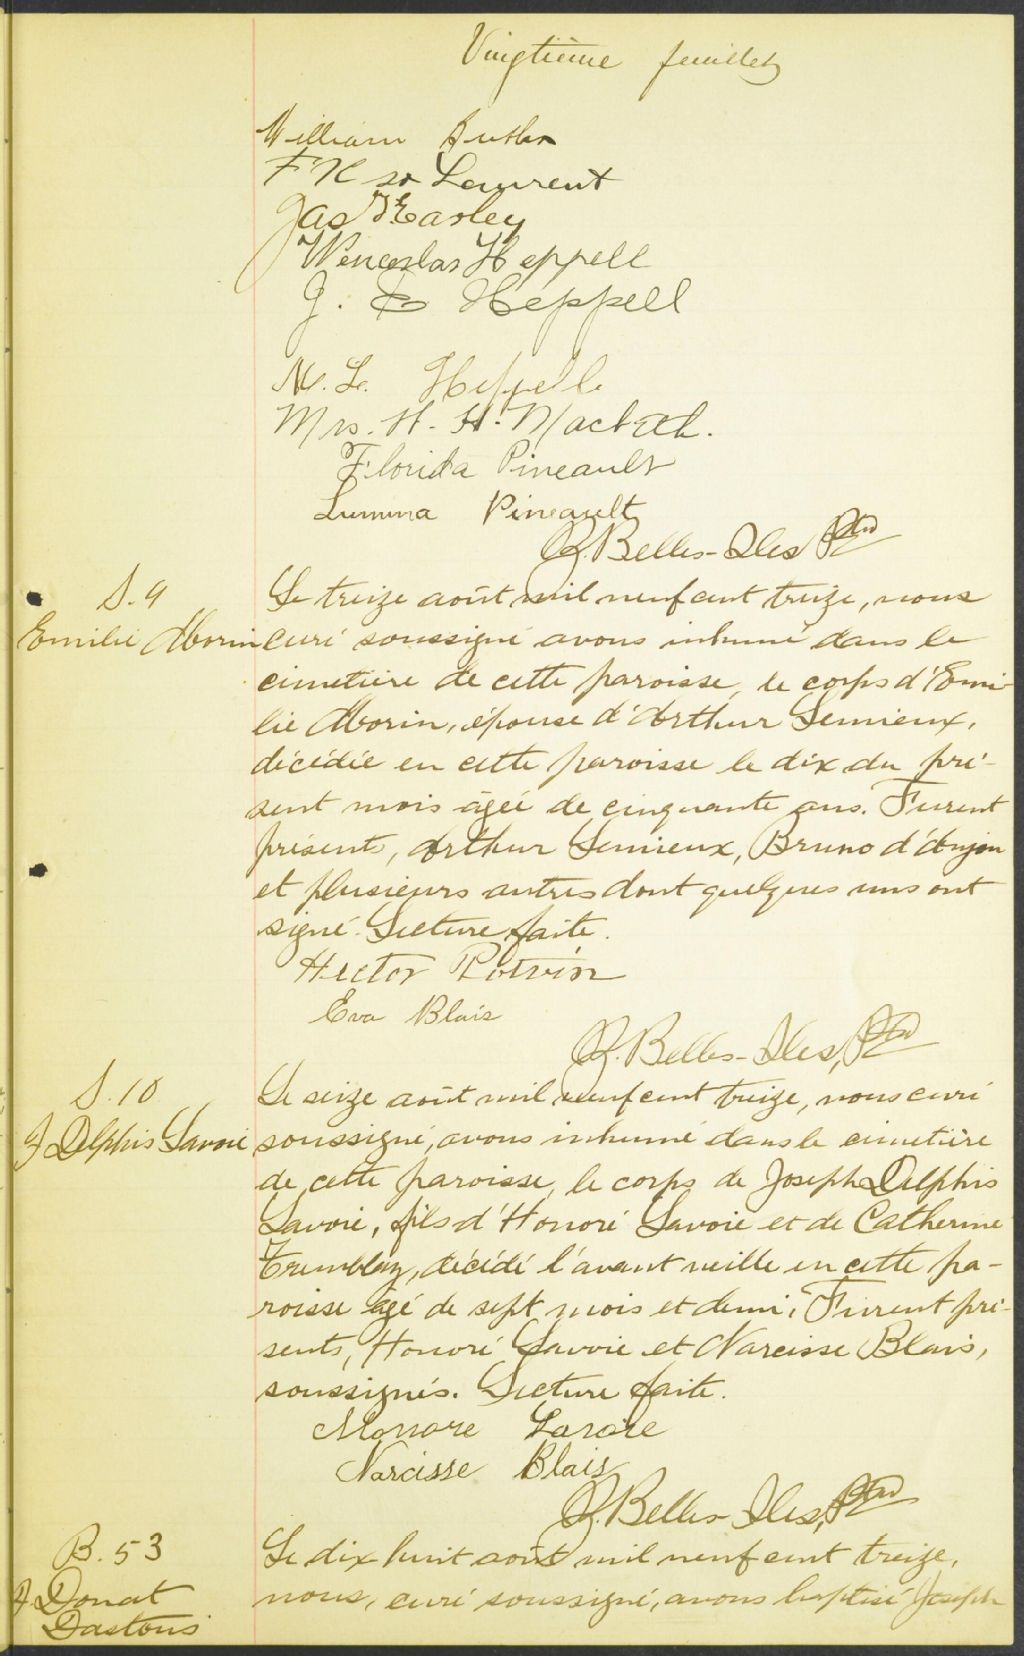 Vingtième feuillet
William Butler
F X St Laurent
Jas Easley
Wenceslas Heppell
J. E Heppell
M. L. Heppell
Mrs. H. H. Macbeth.
Florida Pineault
Lumina Pineault
Z. Belles-Iles Ptre
S. 9
Emilie Morin
Le treize août mil neuf cent treize, nous
curé soussigné avons inhumé dans le
cimetière de cette paroisse, le corps d'Emi-
lie Morin, épouse d'Arthur Lemieux,
décédée en cette paroisse le dix du pré-
sent mois âgée de cinquante ans. Furent
présents, Arthur Lemieux, Bruno d'Anjou
et plusieurs autres dont quelques uns ont
signé. Lecture faite.
Hector Potvin
Eva Blais
Z. Belles-Iles, Ptre
S. 10
J Delphis Savoie
Le seize août mil neuf cent treize, nous curé
soussigné, avons inhumé dans le cimetière
de cette paroisse, le corps de Joseph Delphis
Savoie, fils d'Honoré Savoie et de Catherine
Tremblay, décédé l'avant veille en cette pa-
roisse âgé de sept mois et demi. Furent pré-
sents, Honoré Savoie et Narcisse Blais,
soussignés. Lecture faite.
Honore Savoie
Narcisse Blais
Z. Belles-Iles, Ptre
B. 53
J. Donat
Dastous
Le dix huit août mil neuf cent treize,
nous, curé soussigné, avons baptisé Joseph